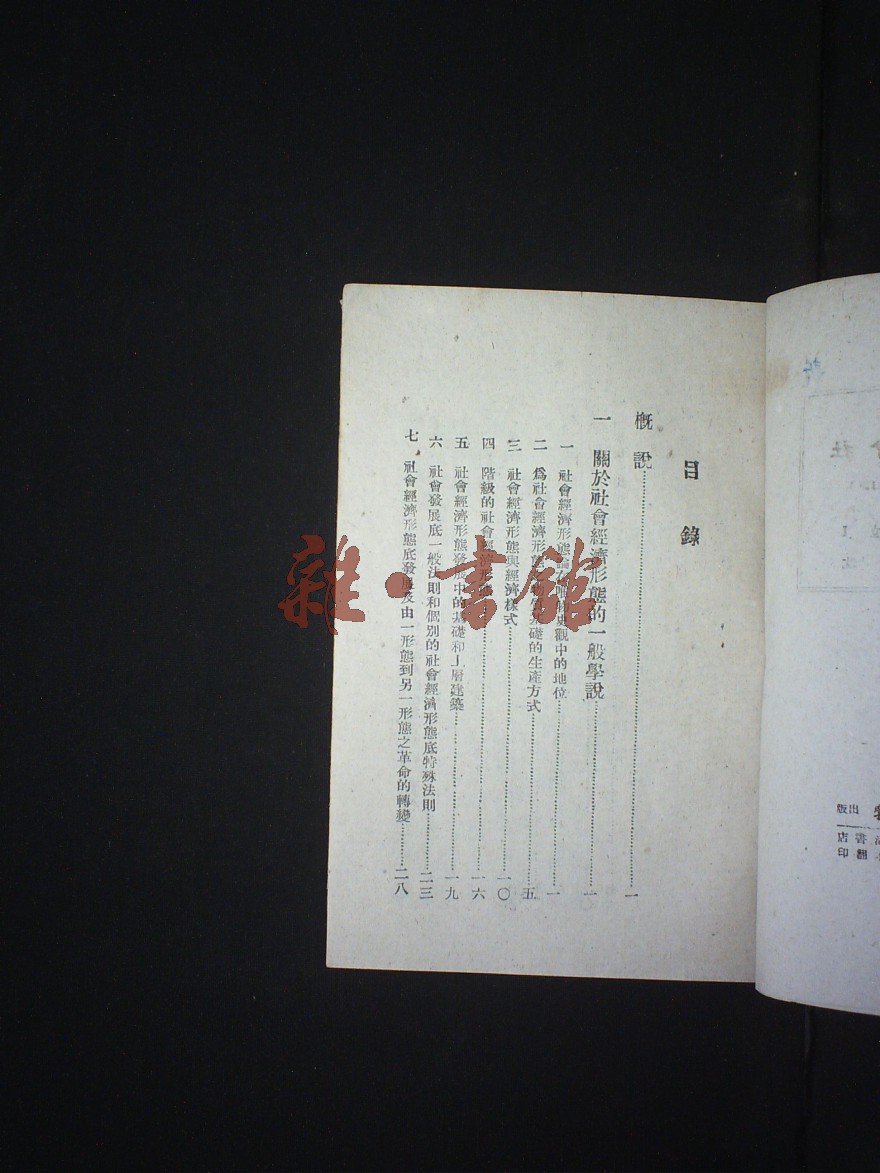 目錄
概說 一
一 關於社會經濟形態的一般學說 一
一 社會經濟形態論在唯物史觀中的地位 一
二 爲社會經濟形態物質基礎的生產方式 五
三 社會經濟形態與經濟樣式 一〇
四 階級的社會經濟形態 一六
五 社會經濟形態發展中的基礎和上層建築 一九
六 社會發展底一般法則和個別的社會經濟形態底特殊法則 二三
七 社會經濟形態底發展及由一形態到另一形態之革命的轉變 二八
雜·書館
出版
書店
翻印